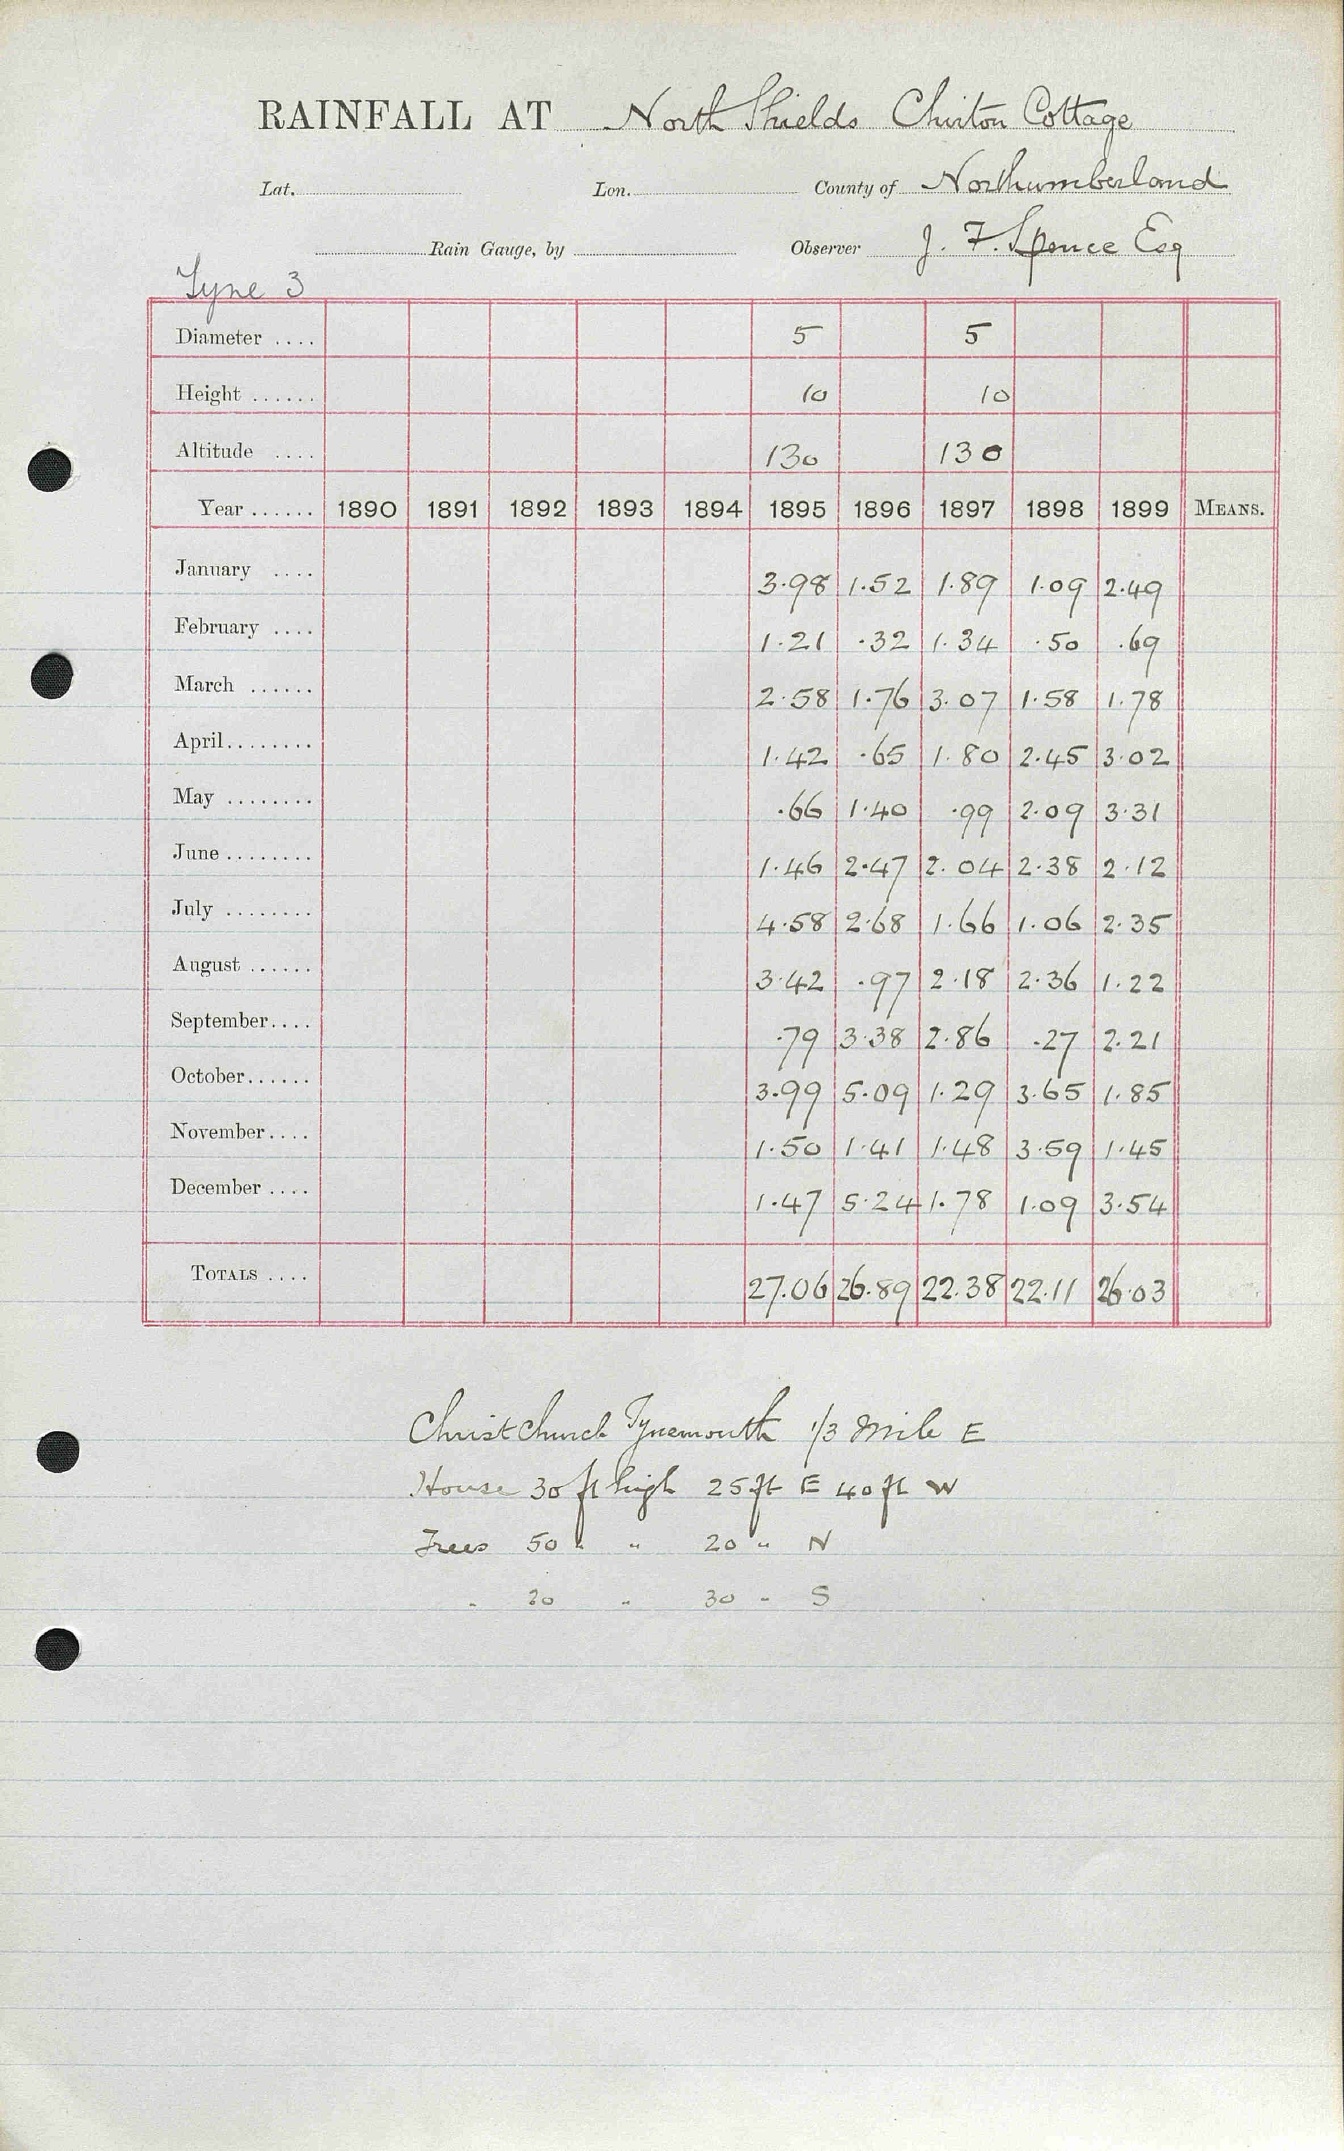 RAINFALL AT North Shields Chirton Cottage
Lat. Lon. County of Northumberland
Rain Gauge, by Observer J. F. Spence Esq
Tyne 3
Diameter .... 5 5
Height ...... 10 10
Altitude .... 130 130
Year ...... 1890 1891 1892 1893 1894 1895 1896 1897 1898 1899 MEANS.
January .... 3.98 1.52 1.89 1.09 2.49
February .... 1.21 .32 1.34 .50 .69
March ...... 2.58 1.76 3.07 1.58 1.78
April........ 1.42 .65 1.80 2.45 3.02
May ........ .66 1.40 .99 2.09 3.31
June ........ 1.46 2.47 2.04 2.38 2.12
July ........ 4.58 2.68 1.66 1.06 2.35
August ...... 3.42 .97 2.18 2.36 1.22
September.... .79 3.38 2.86 .27 2.21
October...... 3.99 5.09 1.29 3.65 1.85
November.... 1.50 1.41 1.48 3.59 1.45
December .... 1.47 5.24 1.78 1.09 3.54
TOTALS .... 27.06 26.89 22.38 22.11 26.03
Christ Church Tynemouth 1/3 Mile E
House 30 ft high 25 ft E 40 ft W
Trees 50 " " 20 " N
" 20 " 30 " S